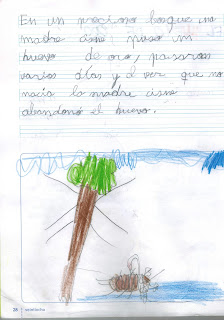 En un precioso bosque una
madre cisne puso un
huevo de oro, pasaron
varios días y al ver que no
nacía la madre cisne
abandonó el huevo.
28